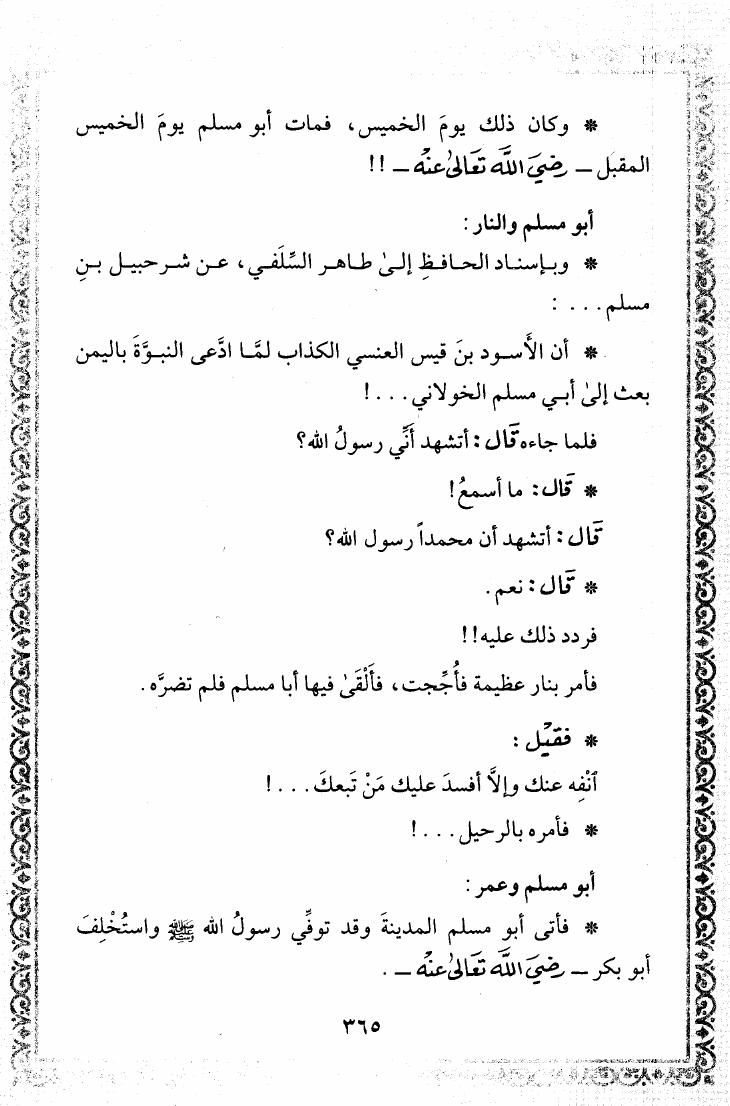 * وكان ذلك يومَ الخميس، فمات أبو مسلم يومَ الخميس
المقبل ــ رضيَ اللَّه تعَالىٰ عنهُ ــ !!
أبو مسلم والنار:
* وبإسناد الحافظِ إلىٰ طاهر السِّلَفي، عن شرحبيل بنِ
مسلم . . . :
* أن الأَسود بنَ قيس العنسي الكذاب لمَّا ادَّعى النبوَّةَ باليمن
بعث إلىٰ أبي مسلم الخولاني . . . !
فلما جاءه قَال: أتشهد أنِّي رسولُ الله؟
* قَال: ما أسمعُ!
قَال: أتشهد أن محمداً رسول الله؟
* قَال: نعم.
فردد ذلك عليه!!
فأمر بنار عظيمة فأُجِّجت، فأَلْقَىٰ فيها أبا مسلم فلم تضرَّه.
* فقيْل:
ٱنْفِه عنك وإلاَّ أفسدَ عليك مَنْ تَبعكَ . . . !
* فأمره بالرحيل . . . !
أبو مسلم وعمر:
* فأتى أبو مسلم المدينةَ وقد توفِّي رسولُ الله ﷺ واستُخْلِفَ
أبو بكر ــ رضيَ اللَّه تعَالىٰ عنهُ ــ .
٣٦٥